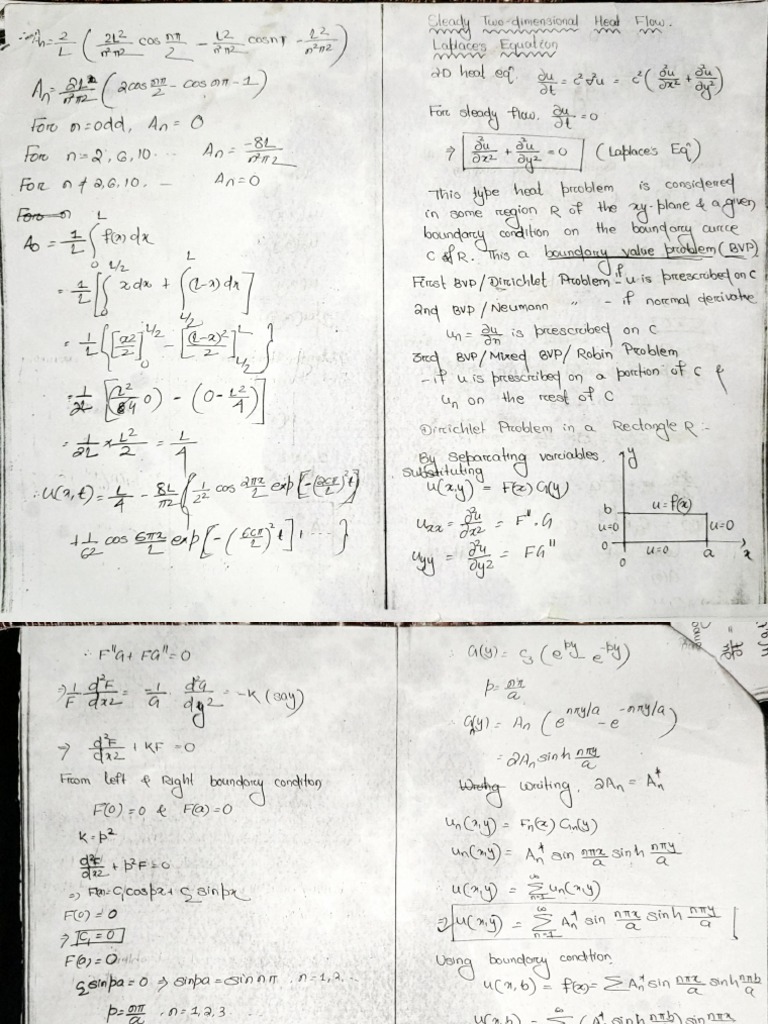 ∴ An = 2/L ( 2L²/n²π² cos nπ/2 - L²/n²π² cos nπ - L²/n²π² )
An = 2L/n²π² ( 2cos nπ/2 - cos nπ - 1 )
For n = odd, An = 0
For n = 2, 6, 10 ... An = -8L/n²π²
For n ≠ 2, 6, 10, ... An = 0
A0 = 1/L ∫₀ᴸ f(x) dx
= 1/L [ ∫₀^(L/2) x dx + ∫_(L/2)^L (L-x) dx ]
= 1/L { [x²/2]₀^(L/2) - [(L-x)²/2]_(L/2)^L }
= 1/2L [ (L²/4 - 0) - (0 - L²/4) ]
= 1/2L × L²/2 = L/4
∴ u(x,t) = L/4 - 8L/π² { 1/2² cos 2πx/L exp[-(2cπ/L)² t]
+ 1/6² cos 6πx/L exp[-(6cπ/L)² t] + ... }
Steady Two-dimensional Heat Flow.
Laplace's Equation
2D heat eqⁿ. ∂u/∂t = c²∇²u = c² ( ∂²u/∂x² + ∂²u/∂y² )
For steady flow. ∂u/∂t = 0
⇒ ∂²u/∂x² + ∂²u/∂y² = 0 (Laplace's Eqⁿ)
This type heat problem is considered
in some region R of the xy-plane & a given
boundary condition on the boundary curve
C of R. This a boundary value problem (BVP)
First BVP/Dirichlet Problem - if u is prescribed on C
2nd BVP/Neumann " - if normal derivative
un = ∂u/∂n is prescribed on C
3rd BVP/Mixed BVP/Robin Problem
- if u is prescribed on a portion of C &
un on the rest of C
Dirichlet Problem in a Rectangle R :-
By separating variables.
substituting
u(x,y) = F(x) G(y)
uxx = ∂²u/∂x² = F''.G
uyy = ∂²u/∂y² = FG''
y
b
u = f(x)
u=0
u=0
0
u=0
a
x
0
∴ F''G + FG'' = 0
⇒ 1/F d²F/dx² = -1/G . d²G/dy² = -K (say)
⇒ d²F/dx² + KF = 0
From left & Right boundary condition
F(0) = 0 & F(a) = 0
K = p²
d²F/dx² + p²F = 0
⇒ F(x) = C₁cos px + C₂ sin px
F(0) = 0
⇒ C₁ = 0
F(a) = 0
C₂ sin pa = 0 ⇒ sin pa = sin nπ, n = 1, 2, ..
p = nπ/a , n = 1, 2, 3
G(y) = C₃ ( e^py - e^-py )
p = nπ/a
∴ Gn(y) = An ( e^nπy/a - e^-nπy/a )
= 2An sinh nπy/a
writing, 2An = An*
un(x,y) = Fn(x) Gn(y)
un(x,y) = An* sin nπx/a sinh nπy/a
∴ u(x,y) = Σ_(n=1)^∞ un(x,y)
⇒ u(x,y) = Σ_(n=1)^∞ An* sin nπx/a sinh nπy/a
Using boundary condition
u(x,b) = f(x) = Σ An* sin nπx/a sinh nπb/a